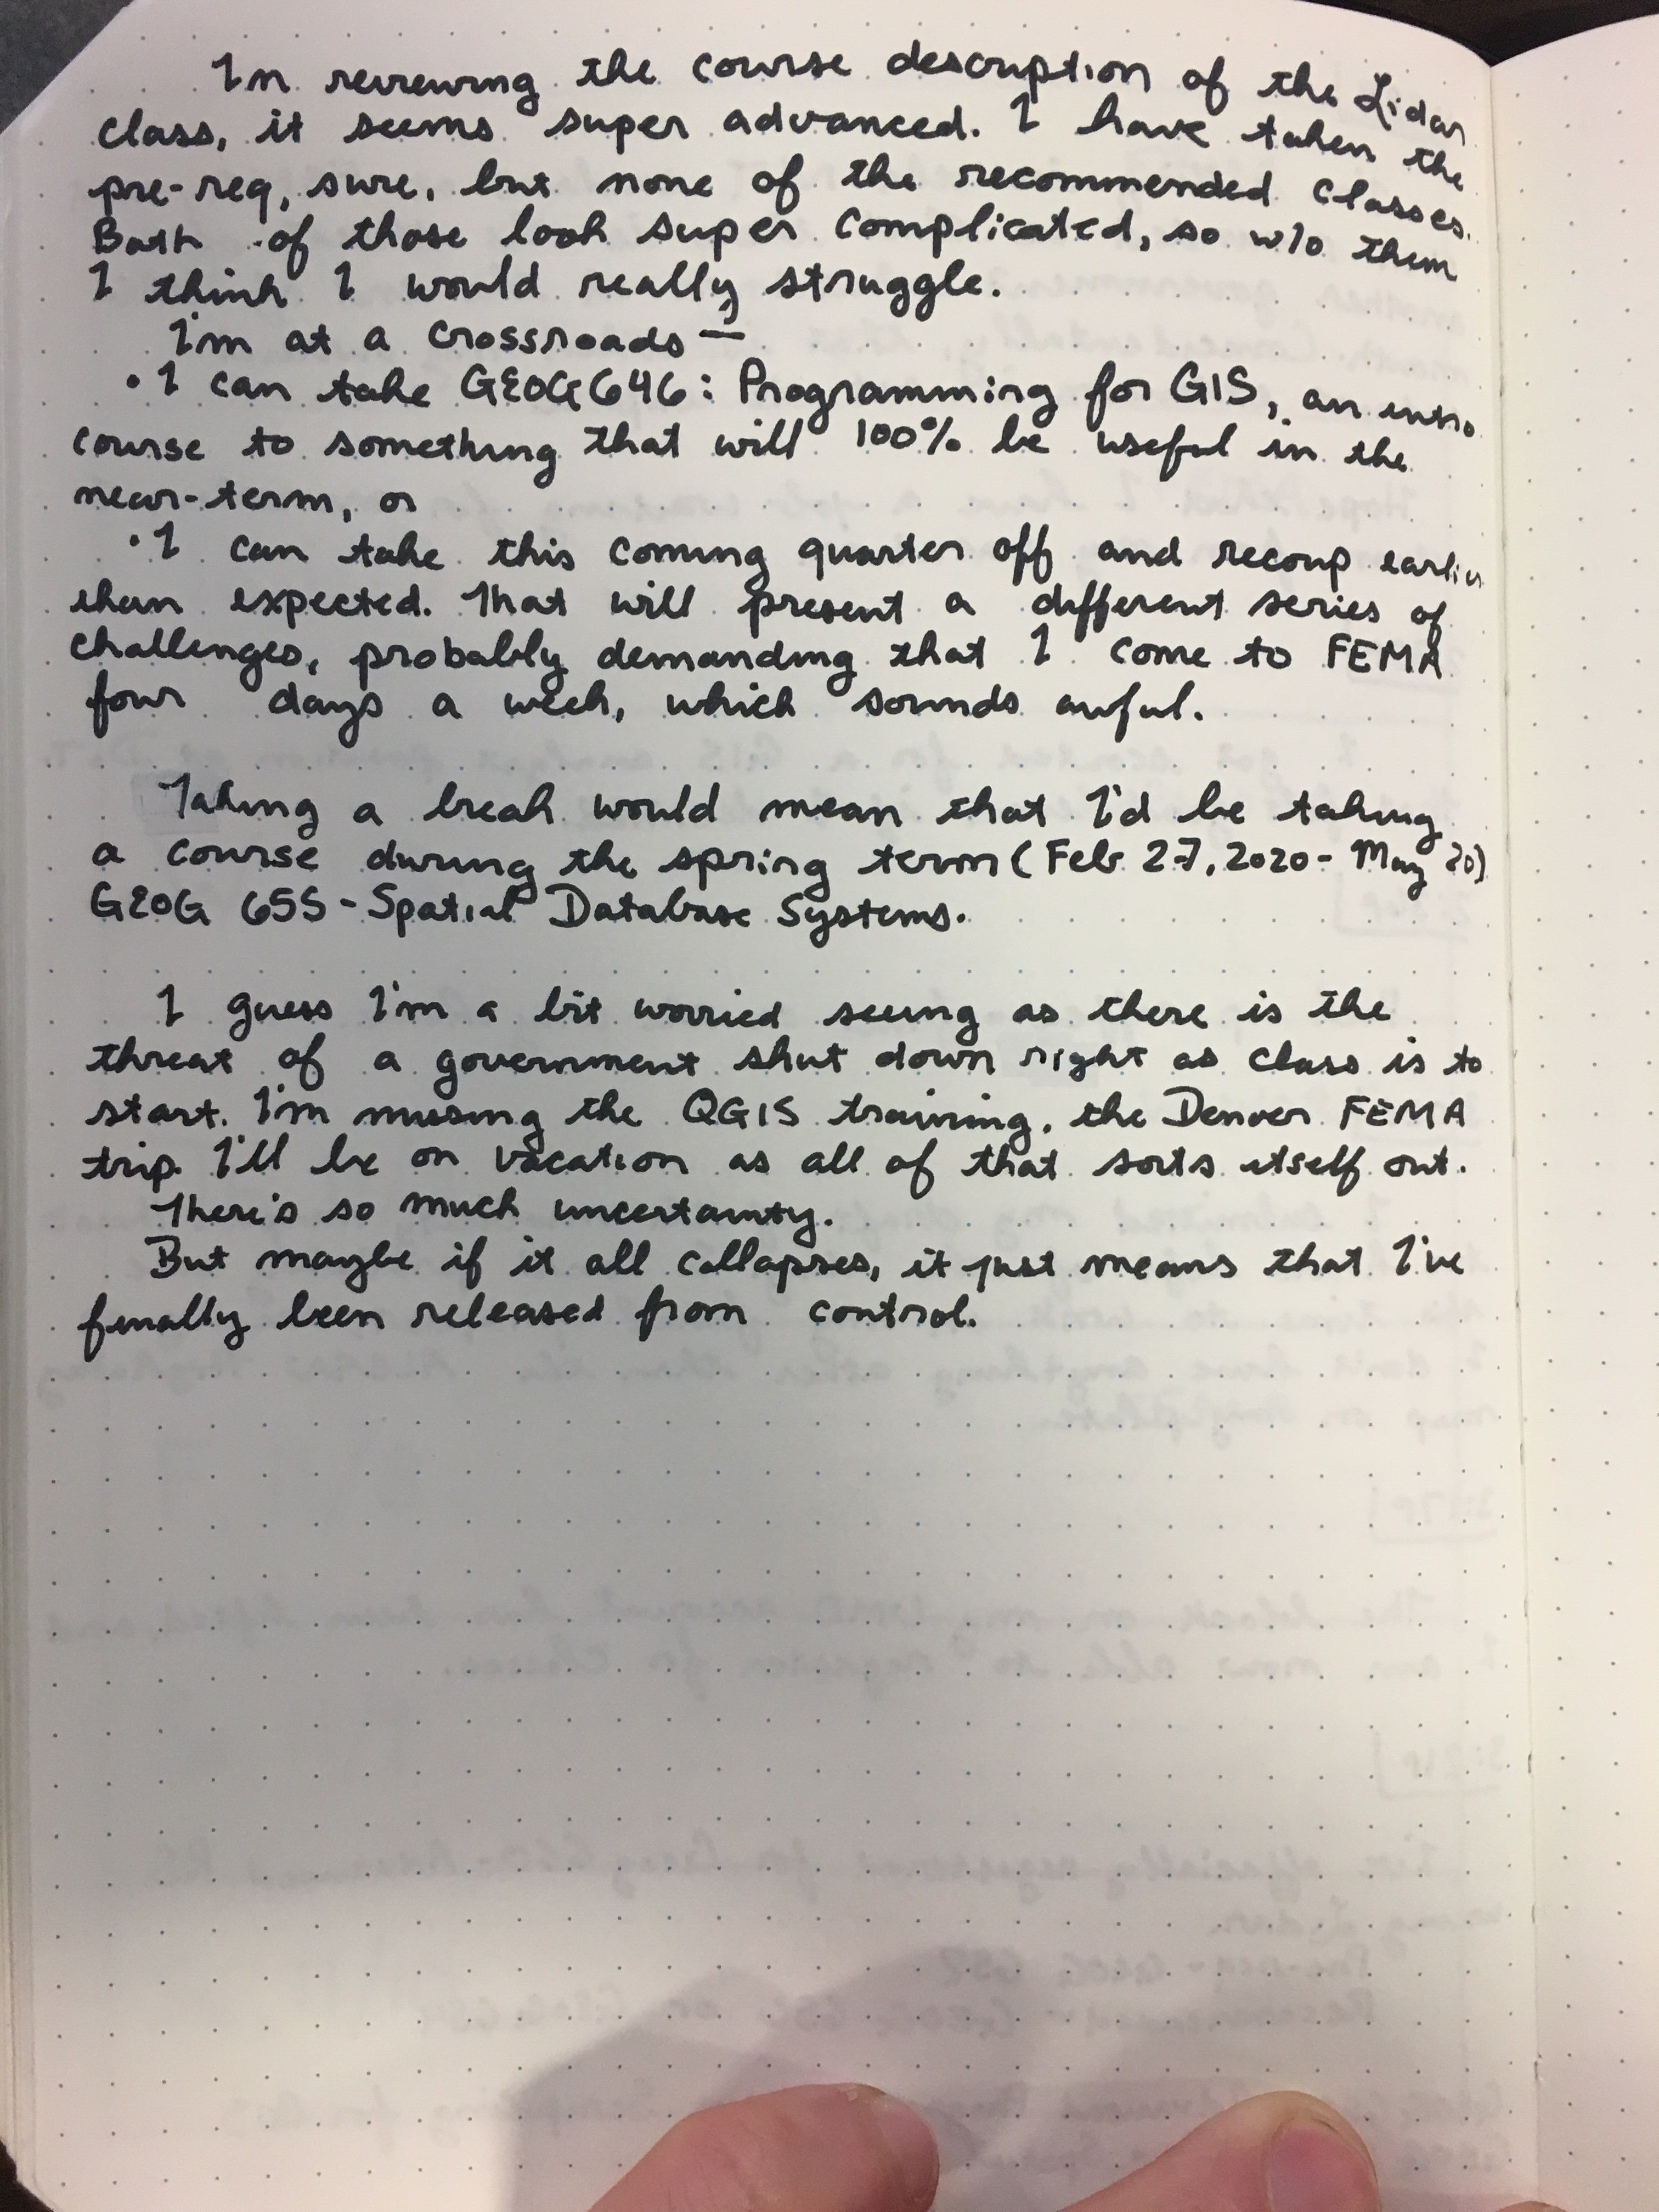 In reviewing the course description of the Lidar
class, it seems super advanced. I have taken the
pre-req, sure, but none of the recommended classes.
Both of those look super complicated, so w/o them
I think I would really struggle.
I'm at a crossroads —
• I can take GEOG646: Programming for GIS, an intro
course to something that will 100% be useful in the
near-term, or
• I can take this coming quarter off and recoup earlier
than expected. That will present a different series of
challenges, probably demanding that I come to FEMA
four days a week, which sounds awful.
Taking a break would mean that I'd be taking
a course during the spring term (Feb 27, 2020 - May 20)
GEOG 655 - Spatial Database Systems.
I guess I'm a bit worried seeing as there is the
threat of a government shut down right as class is to
start. I'm missing the QGIS training, the Denver FEMA
trip. I'll be on vacation as all of that sorts itself out.
There's so much uncertainty.
But maybe if it all collapses, it just means that I've
finally been released from control.